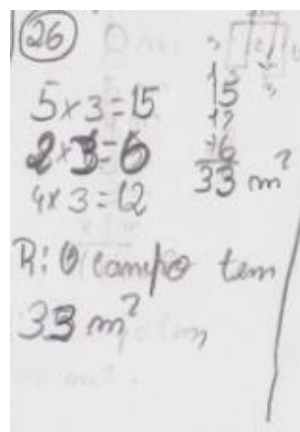 26
5 x 3 = 15
2 x 3 = 6
4 x 3 = 12
15
12
+6
33 m²
R: O campo tem
33 m²